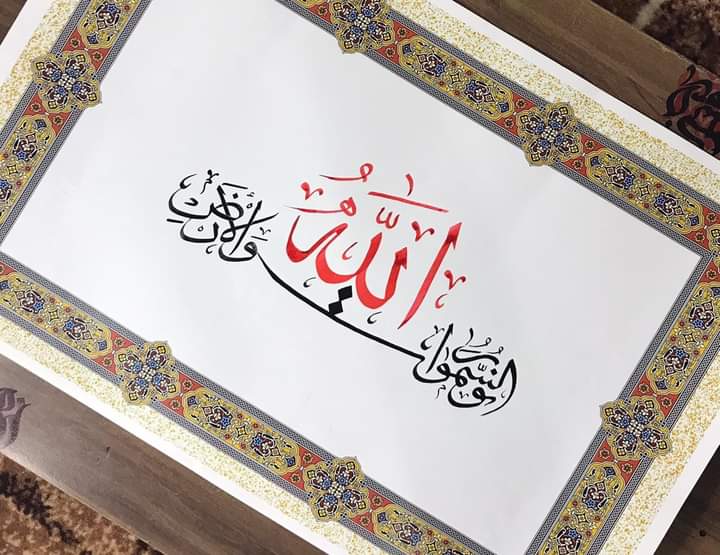 اللهُ نُورُ السَّمواتِ وَالأَرضِ